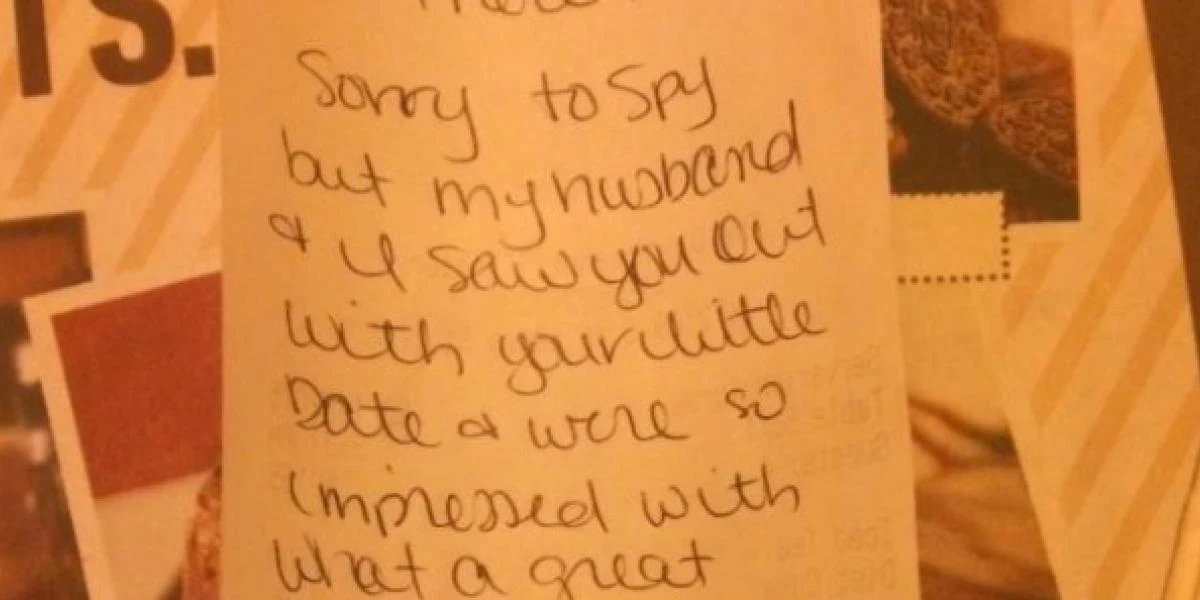 TS.
Sorry to spy
but my husband
& I saw you Out
with your little
Date & were so
impressed with
What a great